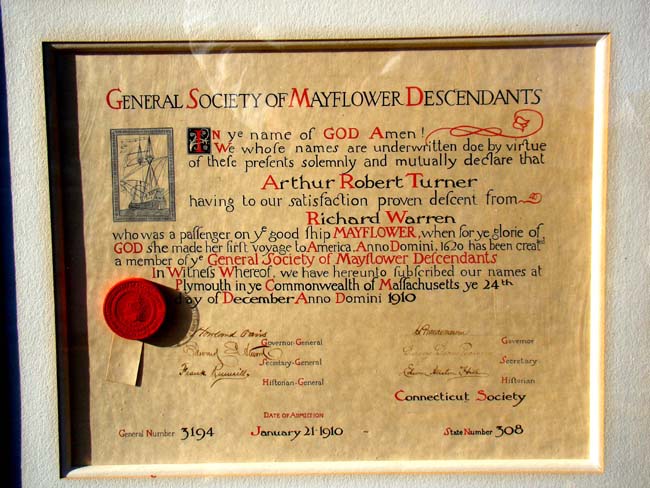 GENERAL SOCIETY OF MAYFLOWER DESCENDANTS
IN ye name of GOD Amen!
We whose names are underwritten doe by virtue
of these presents solemnly and mutually declare that
Arthur Robert Turner
having to our satisfaction proven descent from
Richard Warren
who was a passenger on ye good ship MAYFLOWER, when for ye glorie of
GOD she made her first voyage to America, Anno Domini, 1620 has been creat'd
a member of ye General Society of Mayflower Descendants
In Witness Whereof, we have hereunto subscribed our names at
Plymouth in ye Commonwealth of Massachusetts ye 24th
day of December Anno Domini 1910
Howland Davis
Governor-General
Governor
Secretary-General
Secretary
Frank
Historian-General
Historian
Connecticut Society
DATE OF ADMISSION
General Number 3194
January 21-1910
State Number 308